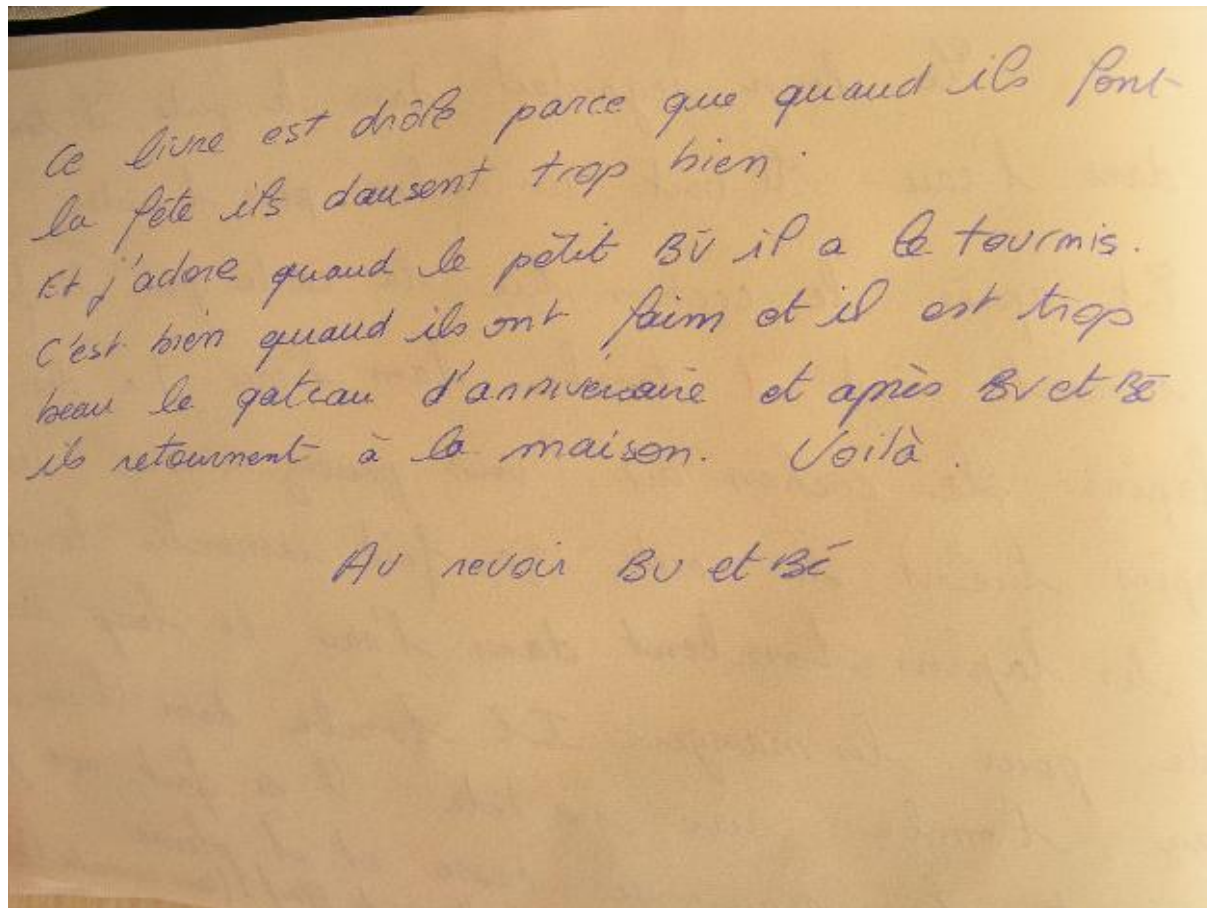 Ce livre est drôle parce que quand ils font
la fête ils dansent trop bien.
Et j'adore quand le petit BU il a le tournis.
C'est bien quand ils ont faim et il est trop
beau le gateau d'anniversaire et après BU et Bé
ils retournent à la maison. Voilà.
Au revoir BU et Bé